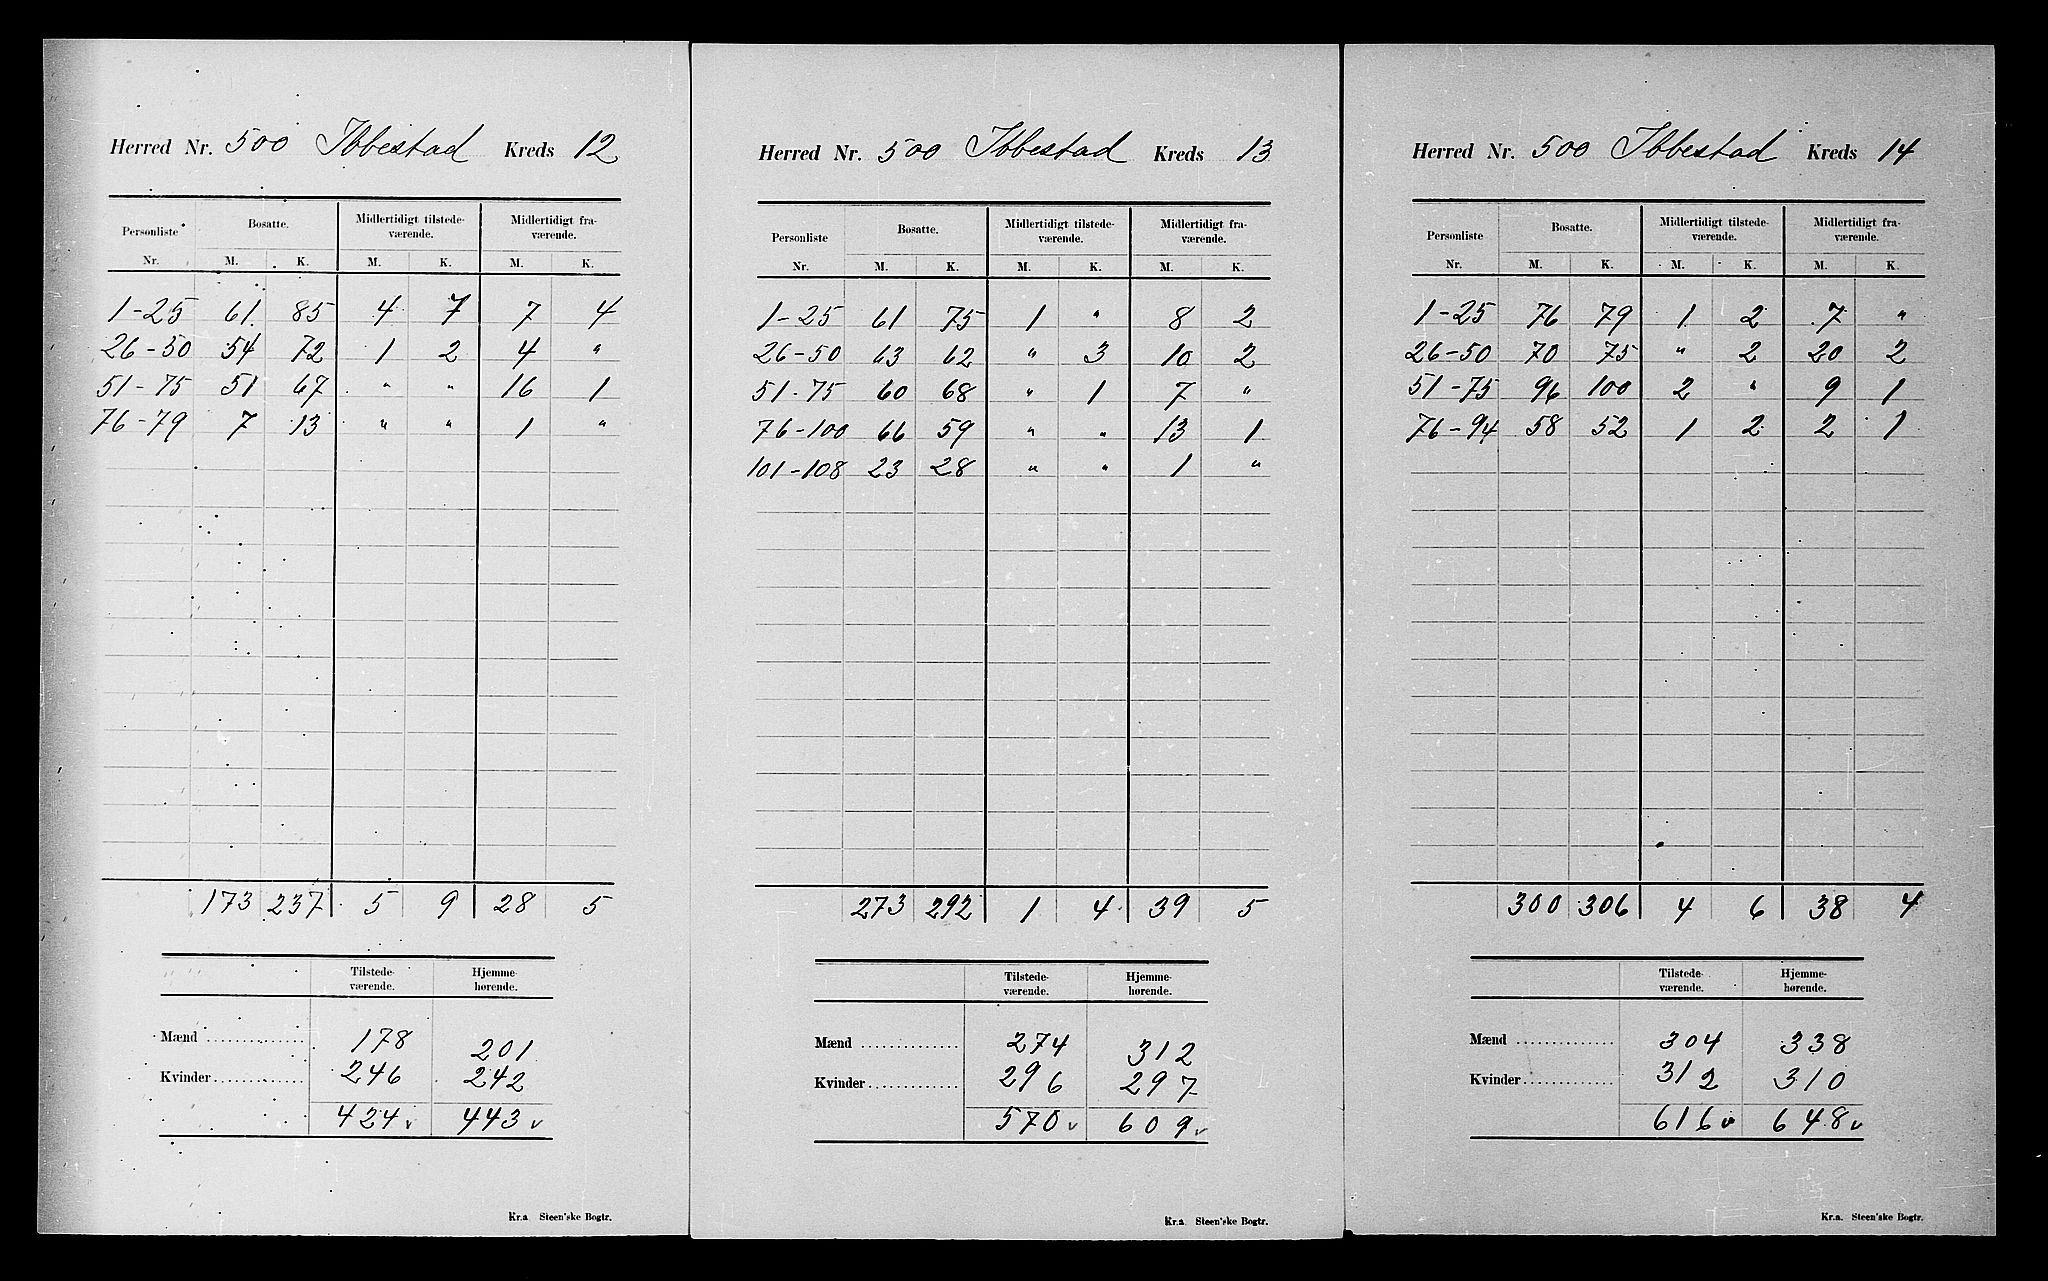 Herred Nr. 500 Ibbestad Kreds 12
Personliste Bosatte. Midlertidigt tilstede- Midlertidigt fra-
værende. værende.
Nr. M. K. M. K. M. K.
1-25 61 85 4 7 7 4
26-50 54 72 1 2 4 "
51-75 51 67 " " 16 1
76-79 7 13 " " 1 "
173 237 5 9 28 5
Tilstede- Hjemme-
værende. hørende.
Mænd 178 201
Kvinder 246 242
424 v 443 v
Kr.a. Steen'ske Bogtr.
Herred Nr. 500 Ibbestad Kreds 13
Personliste Bosatte. Midlertidigt tilstede- Midlertidigt fra-
værende. værende.
Nr. M. K. M. K. M. K.
1-25 61 75 1 " 8 2
26-50 63 62 " 3 10 2
51-75 60 68 " 1 7 "
76-100 66 59 " " 13 1
101-108 23 28 " " 1 "
273 292 1 4 39 5
Tilstede- Hjemme-
værende. hørende.
Mænd 274 312
Kvinder 296 297
570 v 609 v
Kr.a. Steen'ske Bogtr.
Herred Nr. 500 Ibbestad Kreds 14
Personliste Bosatte. Midlertidigt tilstede- Midlertidigt fra-
værende. værende.
Nr. M. K. M. K. M. K.
1-25 76 79 1 2 7 "
26-50 70 75 " 2 20 2
51-75 96 100 2 " 9 1
76-94 58 52 1 2 2 1
300 306 4 6 38 4
Tilstede- Hjemme-
værende. hørende.
Mænd 304 338
Kvinder 312 310
616 v 648 v
Kr.a. Steen'ske Bogtr.